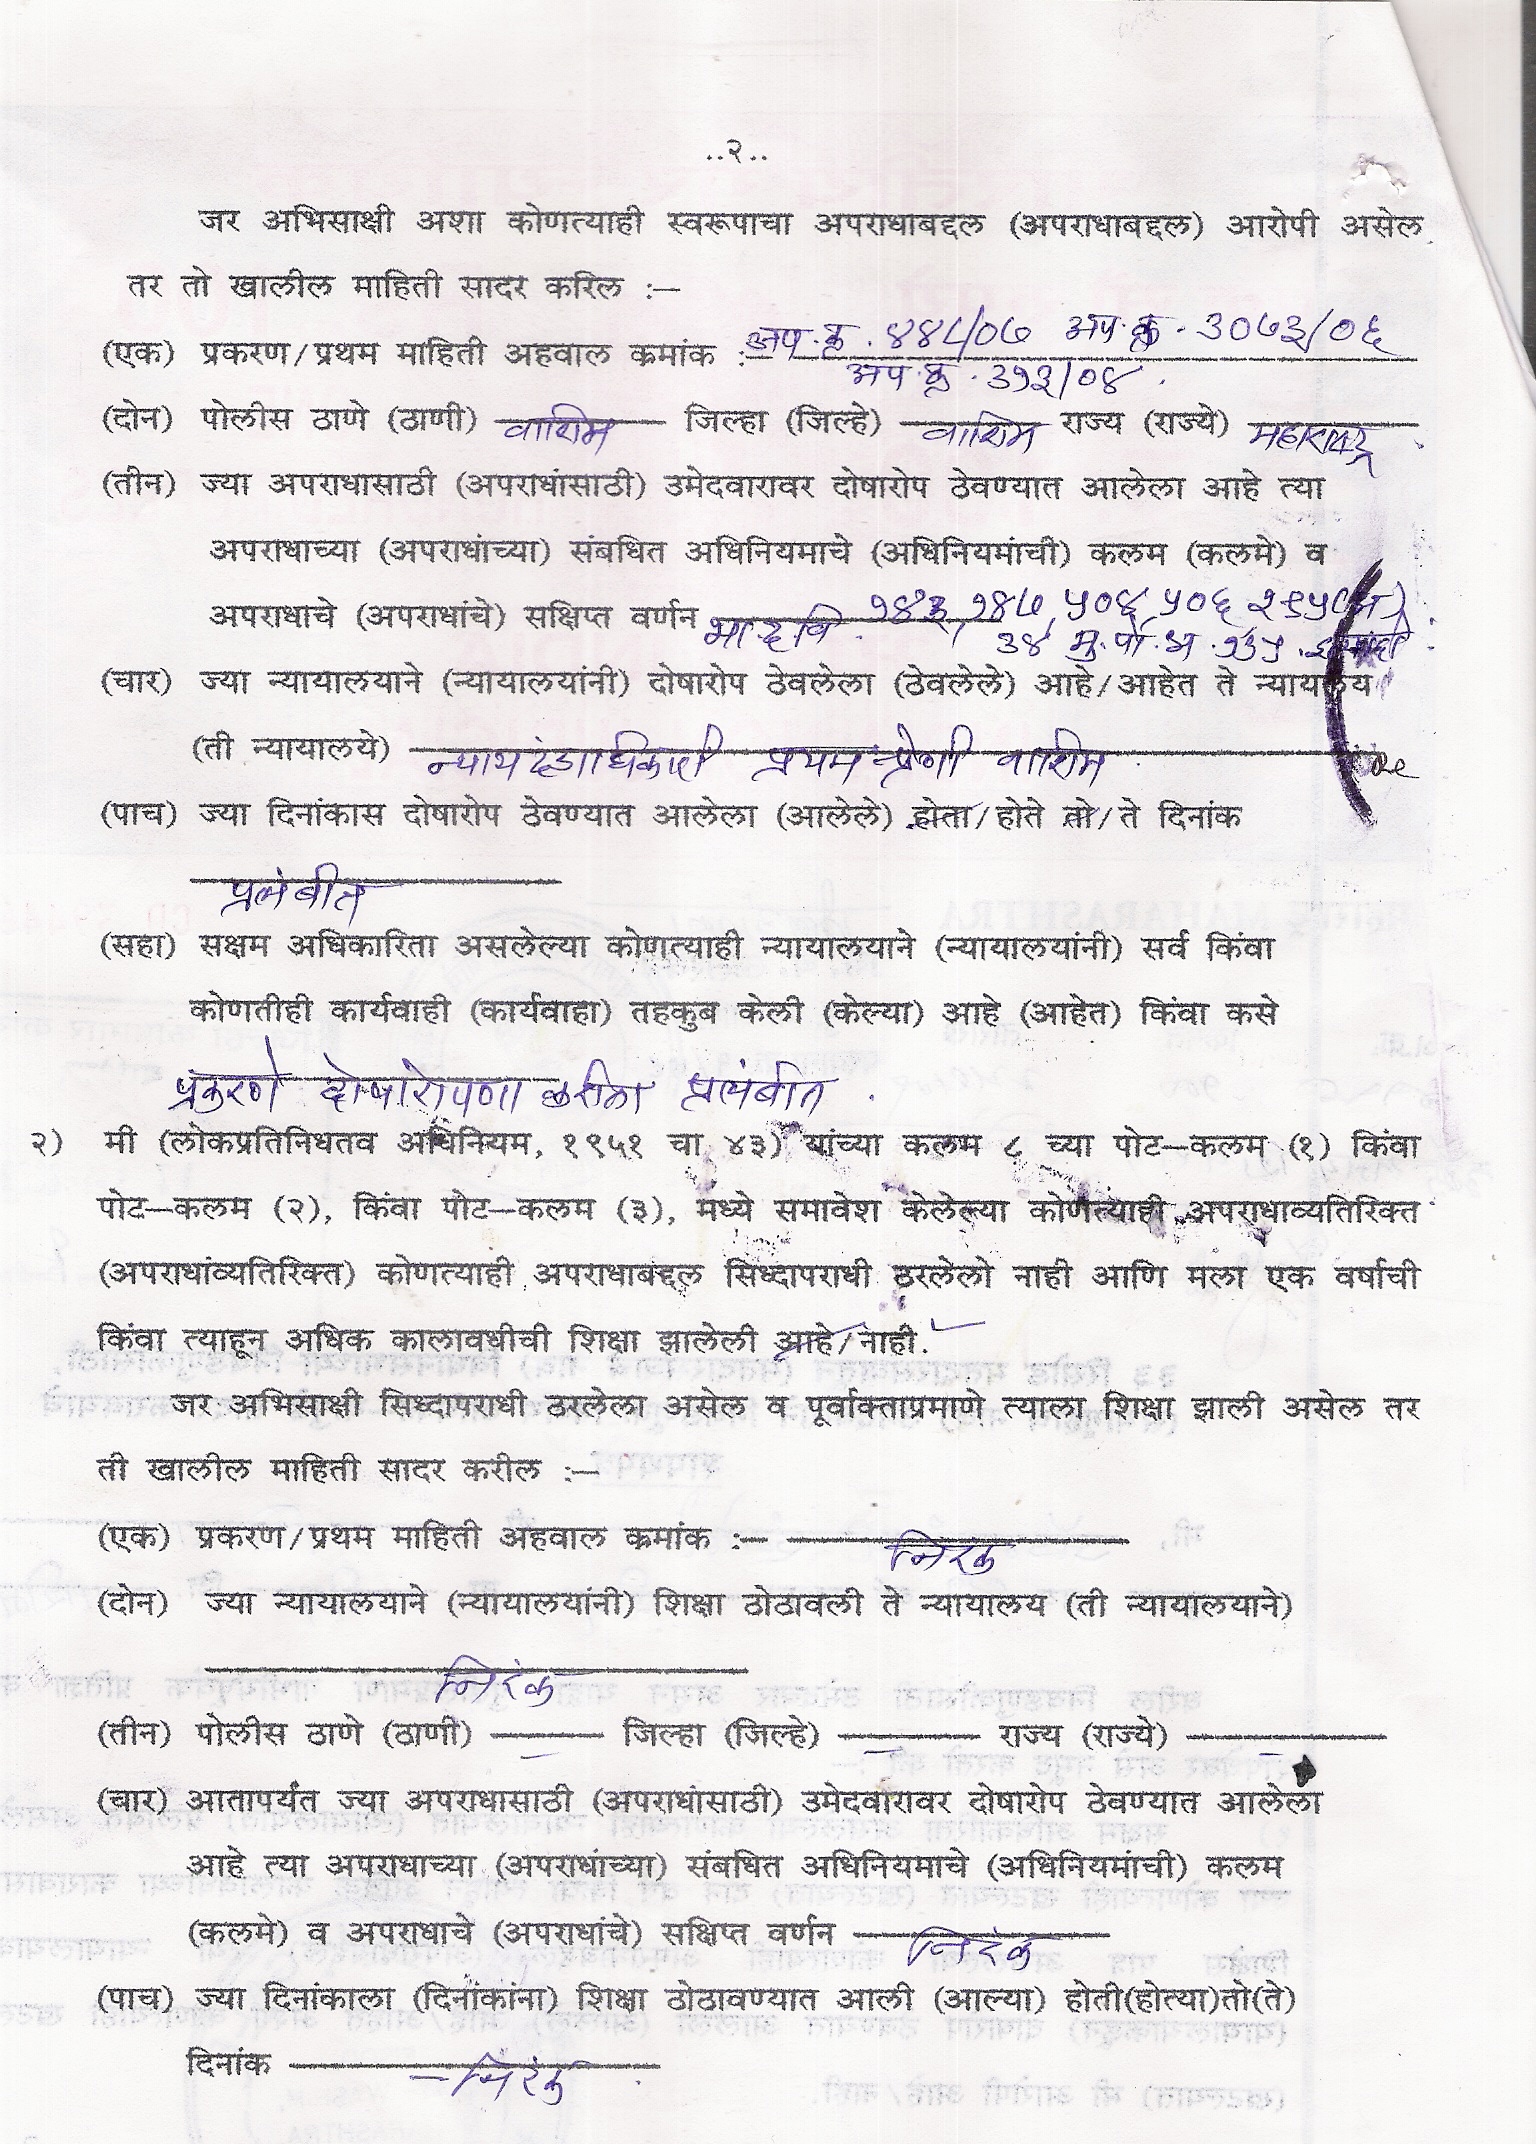 ..२..
जर अभिसाक्षी अशा कोणत्याही स्वरूपाचा अपराधाबद्दल (अपराधाबद्दल) आरोपी असेल
तर तो खालील माहिती सादर करिल :—
(एक) प्रकरण/प्रथम माहिती अहवाल क्रमांक : अप.क्र. ४४८/०७ अप.क्र. ३०७३/०६
अप.क्र. ३१३/०४.
(दोन) पोलीस ठाणे (ठाणी) वाशिम जिल्हा (जिल्हे) वाशिम राज्य (राज्ये) महाराष्ट्र
(तीन) ज्या अपराधासाठी (अपराधांसाठी) उमेदवारावर दोषारोप ठेवण्यात आलेला आहे त्या
अपराधाच्या (अपराधांच्या) संबधित अधिनियमाचे (अधिनियमांची) कलम (कलमे) व
अपराधाचे (अपराधांचे) सक्षिप्त वर्णन भा.द.वि. १४३, १४७, ५०४ ५०६
३४ मु.पो.अ. १३५
(चार) ज्या न्यायालयाने (न्यायालयांनी) दोषारोप ठेवलेला (ठेवलेले) आहे/आहेत ते न्यायालय
(ती न्यायालये) न्यायदंडाधिकारी प्रथम श्रेणी वाशिम
(पाच) ज्या दिनांकास दोषारोप ठेवण्यात आलेला (आलेले) होता/होते तो/ते दिनांक
प्रलंबीत
(सहा) सक्षम अधिकारिता असलेल्या कोणत्याही न्यायालयाने (न्यायालयांनी) सर्व किंवा
कोणतीही कार्यवाही (कार्यवाहा) तहकुब केली (केल्या) आहे (आहेत) किंवा कसे
प्रकरणे दोषारोपणा करीता प्रलंबीत .
२) मी (लोकप्रतिनिधतव अधिनियम, १९५१ चा ४३) यांच्या कलम ८ च्या पोट—कलम (१) किंवा
पोट—कलम (२), किंवा पोट—कलम (३), मध्ये समावेश केलेल्या कोणत्याही अपराधाव्यतिरिक्त
(अपराधांव्यतिरिक्त) कोणत्याही अपराधाबद्दल सिध्दापराधी ठरलेलो नाही आणि मला एक वर्षाची
किंवा त्याहून अधिक कालावधीची शिक्षा झालेली आहे/नाही.
जर अभिसाक्षी सिध्दापराधी ठरलेला असेल व पूर्वाक्ताप्रमाणे त्याला शिक्षा झाली असेल तर
ती खालील माहिती सादर करील :—
(एक) प्रकरण/प्रथम माहिती अहवाल क्रमांक :— निरंक
(दोन) ज्या न्यायालयाने (न्यायालयांनी) शिक्षा ठोठावली ते न्यायालय (ती न्यायालयाने)
निरंक
(तीन) पोलीस ठाणे (ठाणी) — जिल्हा (जिल्हे) — राज्य (राज्ये) —
(चार) आतापर्यंत ज्या अपराधासाठी (अपराधांसाठी) उमेदवारावर दोषारोप ठेवण्यात आलेला
आहे त्या अपराधाच्या (अपराधांच्या) संबधित अधिनियमाचे (अधिनियमांची) कलम
(कलमे) व अपराधाचे (अपराधांचे) सक्षिप्त वर्णन निरंक
(पाच) ज्या दिनांकाला (दिनांकांना) शिक्षा ठोठावण्यात आली (आल्या) होती(होत्या)तो(ते)
दिनांक — निरंक